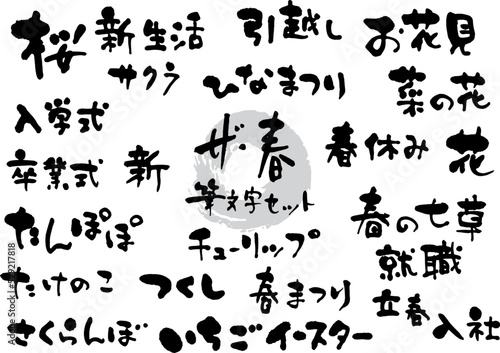 桜 新生活 引越し お花見
サクラ ひなまつり 菜の花
入学式 ザ・春 春休み 花
卒業式 新 筆文字セット
たんぽぽ チューリップ 春の七草
就職
たけのこ つくし 春まつり 立春
さくらんぼ いちご イースター 入社